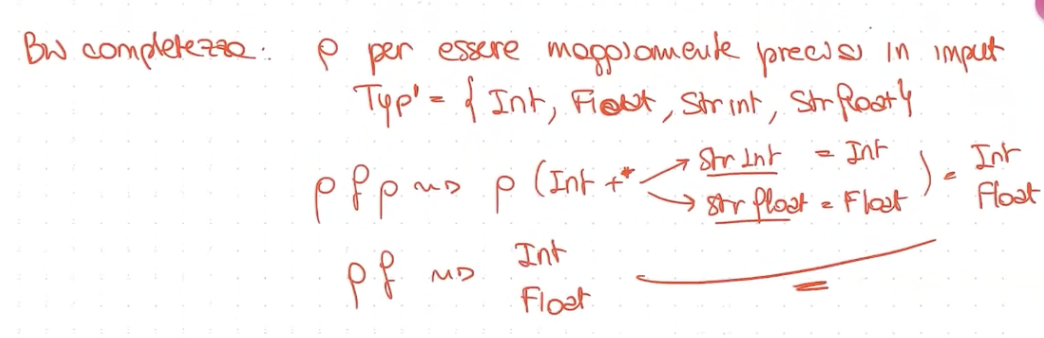 BW completezza: ρ per essere maggiormente precisi in input
Typ' = { Int, Float, Strint, Strfloat}
ρ f ρ ~> ρ (Int +* → Str Int = Int → Str float = Float ) = Int Float
ρ f ~> Int Float